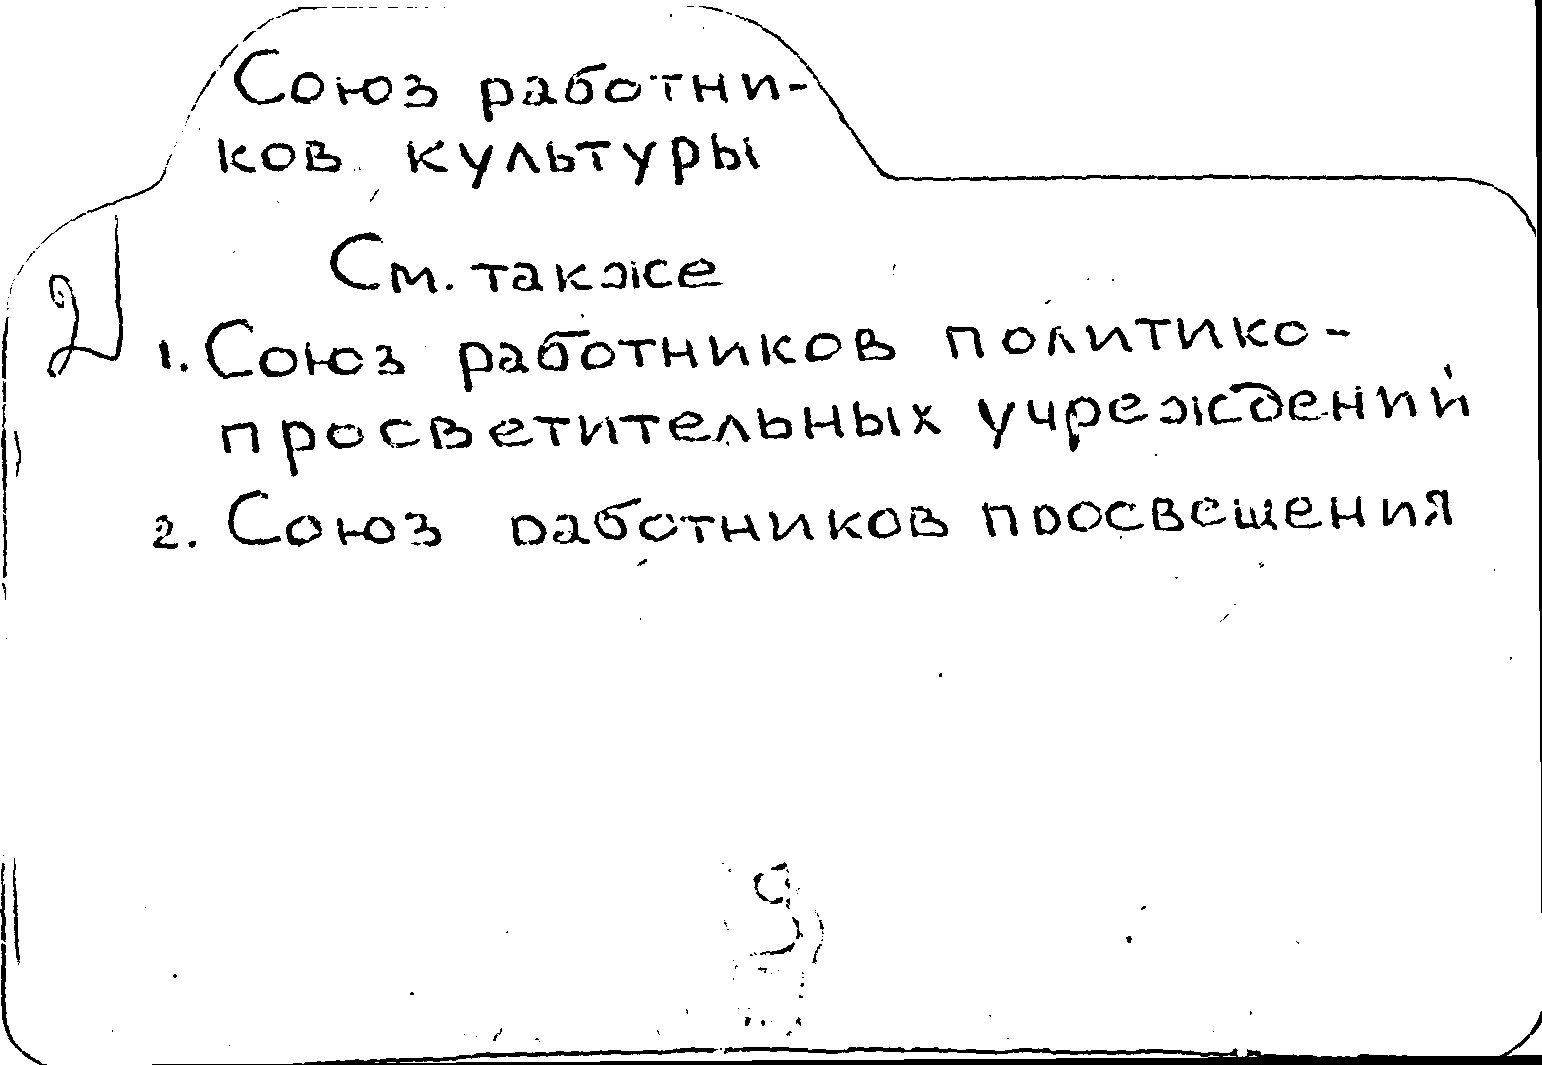 Союз работни-
ков культуры
См. также
1. Союз работников политико-
просветительных учреждений
2. Союз работников просвещения